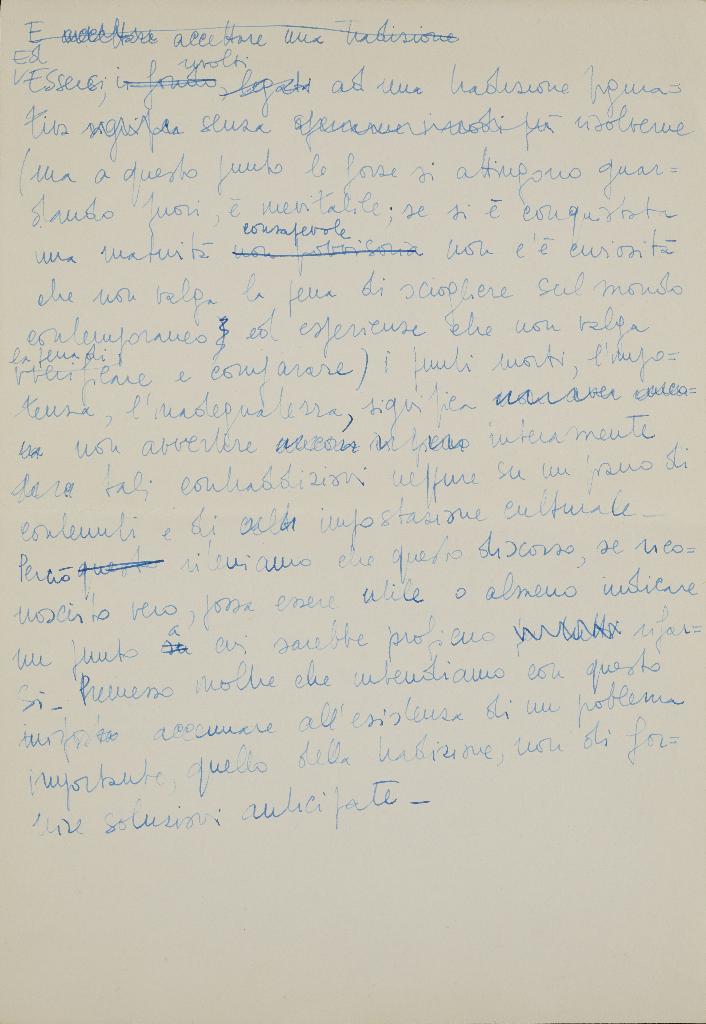 E accettare accettare una tradizione
Ed rivolti
Esserci, in fondo, legati ad una tradizione figura=
tiva significa senza risolverne
(ma a questo punto le forze si attingono guar=
dando fuori, è inevitabile; se si è conquistata
consapevole
una maturità non provvisoria non c'è curiosità
che non valga la pena di sciogliere sul mondo
contemporaneo ed esperienze che non valga
la pena di
verificare e comparare) i punti morti, l'impo=
tenza, l'inadeguatezza, significa
non avvertire ancora interamente
tali contraddizioni neppure su un piano di
contenuti e di impostazione culturale_
Perciò questo riteniamo che questo discorso, se rico=
nosciuto vero, possa essere utile o almeno indicare
a
un punto cui sarebbe proficuo rifar=
si_ Premesso inoltre che intendiamo con questo
accennare all'esistenza di un problema
importante, quello della tradizione, non di for=
nire soluzioni anticipate_